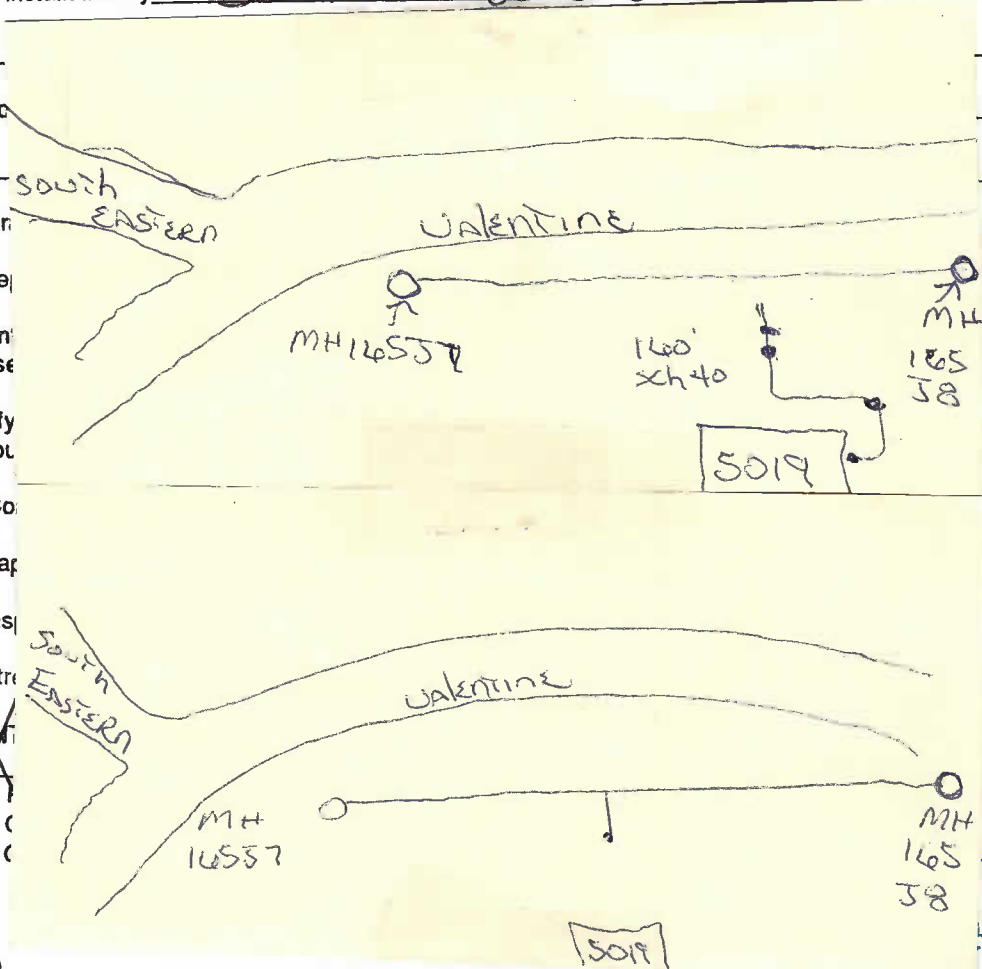 SOUTH
EASTERN
VALENTINE
MH165J7
160'
sch 40
MH
165
J8
5019
SOUTH
EASTERN
VALENTINE
MH
165J7
MH
165
J8
5019